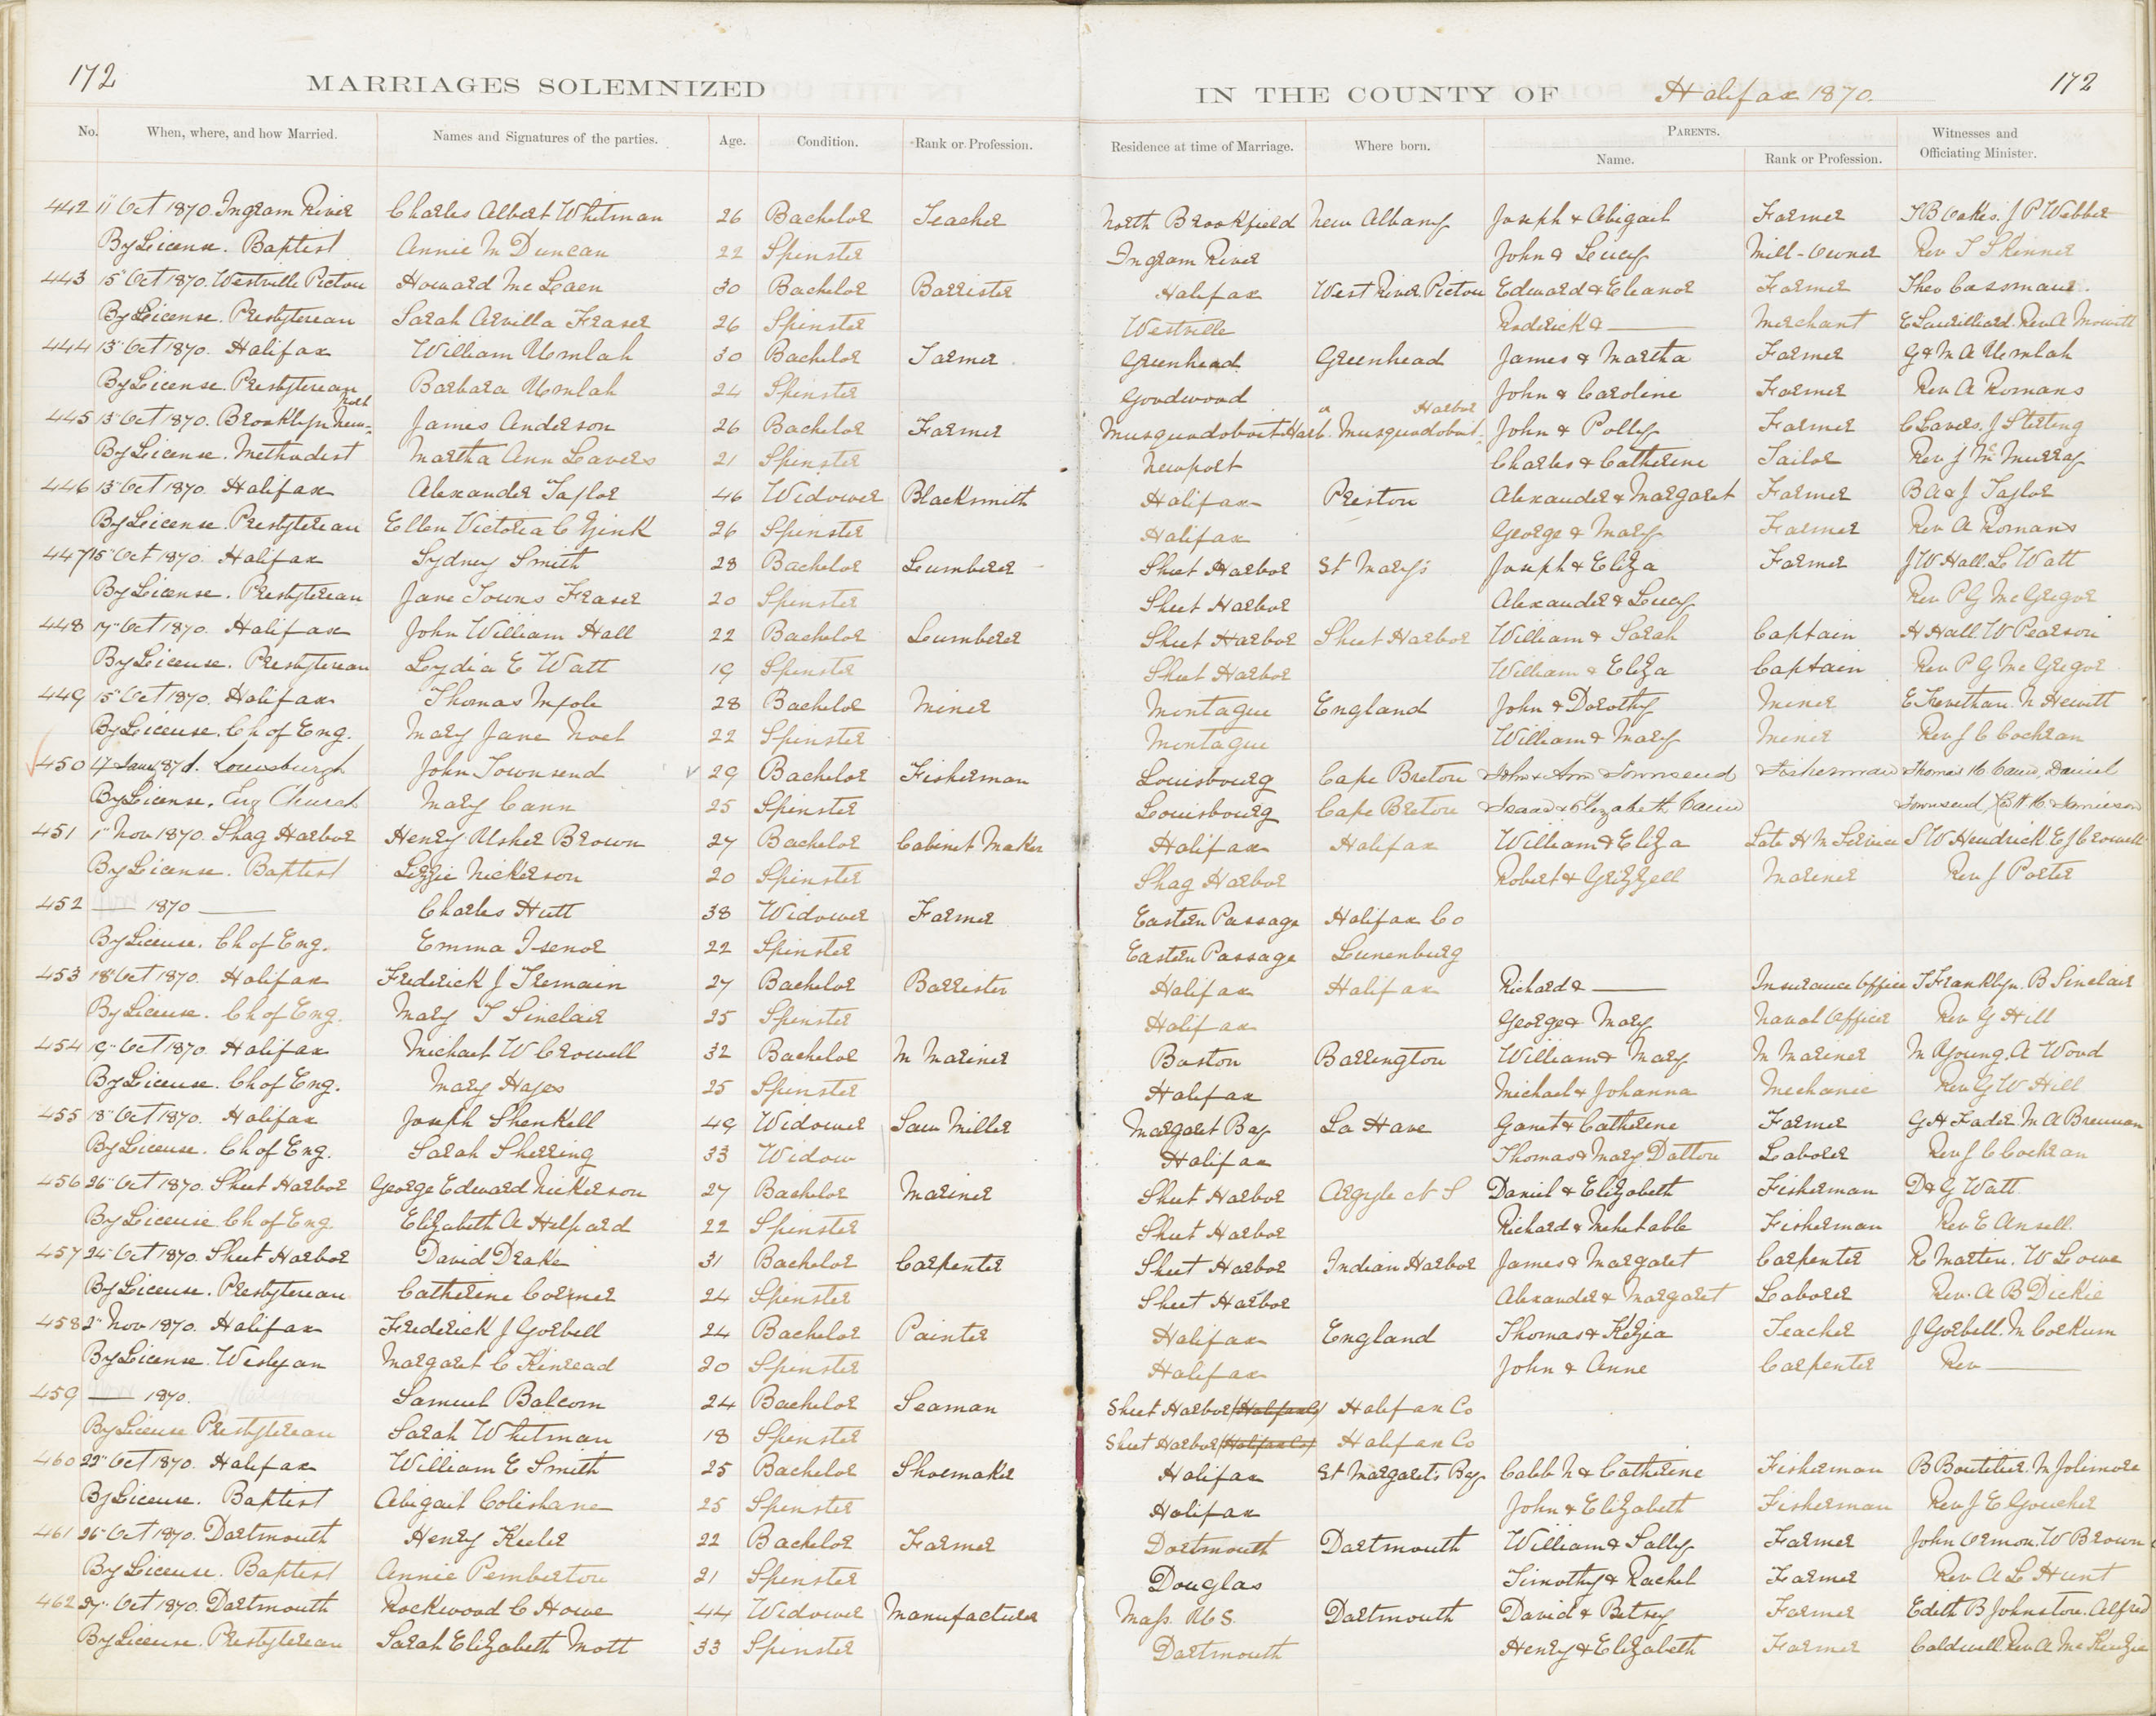 172
MARRIAGES SOLEMNIZED
IN THE COUNTY OF Halifax 1870.
172
No. When, where, and how Married. Names and Signatures of the parties. Age. Condition. Rank or Profession. Residence at time of Marriage. Where born. PARENTS. Name. Rank or Profession. Witnesses and Officiating Minister.
442 11" Oct 1870. Ingram River Charles Albert Whitman 26 Bachelor Teacher North Brookfield New Albany Joseph & Abigail Farmer J B Oakes. J P Webber
By License. Baptist Annie M Duncan 22 Spinster Ingram River John & Lucy Mill-Owner Rev I Skinner
443 15" Oct 1870. Westville Pictou Howard Mc Laen 30 Bachelor Barrister Halifax West River Pictou Edward & Eleanor Farmer Theo
By License. Presbyterean Sarah Arvilla Fraser 26 Spinster Westville Roderick & — Merchant E Laurilliard. Rev A Mowitt
444 13" Oct 1870. Halifax William Umlah 30 Bachelor Farmer Greenhead Greenhead James & Martha Farmer G & M A Umlah
By License. Presbyterean Barbara Umlah 24 Spinster Goodwood John & Caroline Farmer Rev A Romans
445 13" Oct 1870. Brooklyn New- port James Anderson 26 Bachelor Farmer Musquodoboit Harb. Musquodoboit Harbor John & Polly Farmer C Lavers. J Sterling
By License. Methodist Martha Ann Lavers 21 Spinster Newport Charles & Catherine Tailor Rev J Mc Murray
446 13" Oct 1870. Halifax Alexander Taylor 46 Widower Blacksmith Halifax Preston Alexander & Margaret Farmer B A & J Taylor
By License. Presbyterean Ellen Victoria C Zink 26 Spinster Halifax George & Mary Farmer Rev A Romans
447 15" Oct 1870. Halifax Sydney Smith 28 Bachelor Lumberer Sheet Harbor St Mary's Joseph & Eliza Farmer J W Hall. L Watt
By License. Presbyterean Jane Towns Fraser 20 Spinster Sheet Harbor Alexander & Lucy Rev P G Mc Gregor
448 17" Oct 1870. Halifax John William Hall 22 Bachelor Lumberer Sheet Harbor Sheet Harbor William & Sarah Captain H Hall W Pearson
By License. Presbyterean Lydia E Watt 19 Spinster Sheet Harbor William & Eliza Captain Rev P G Mc Gregor
449 15" Oct 1870. Halifax Thomas 28 Bachelor Miner Montague England John & Dorothy Miner E Trevithan. N Hewitt
By License. Ch of Eng. Mary Jane Noel 22 Spinster Montague William & Mary Miner Rev J C Cochran
450 Louisburgh John Townsend 29 Bachelor Fisherman Louisbourg Cape Breton John & Ann Townsend Fisherman Thomas H Cann, Daniel
By License. Eng Church Mary Cann 25 Spinster Louisbourg Cape Breton Isaac & Elizabeth Cann Townsend
451 1" Nov 1870. Shag Harbor Henry Usher Brown 27 Bachelor Cabinet Maker Halifax Halifax William & Eliza Late H M Service S W Hendrick. E J Crowell
By License. Baptist Lizzie Nickerson 20 Spinster Shag Harbor Robert & Grizzell Mariner Rev J Porter
452 — 1870 — Charles Hutt 38 Widower Farmer Eastern Passage Halifax Co
By License. Ch of Eng. Emma Isenor 22 Spinster Eastern Passage Lunenburg
453 18" Oct 1870. Halifax Frederick J Tremain 27 Bachelor Barrister Halifax Halifax Richard & — Insurance Office T Franklyn. B Sinclair
By License. Ch of Eng. Mary T Sinclair 25 Spinster Halifax George & Mary Naval Officer Rev G Hill
454 19" Oct 1870. Halifax Michael W Crowell 32 Bachelor M Mariner Boston Barrington William & Mary M Mariner M Young. A Wood
By License. Ch of Eng. Mary Hayes 25 Spinster Halifax Michael & Johanna Mechanic Rev G W Hill
455 18" Oct 1870. Halifax Joseph Shenkell 49 Widower Saw Miller Margaret Bay La Have Ganet & Catherine Farmer G H Fader. M A Brennan
By License. Ch of Eng. Sarah Sherring 33 Widow Halifax Thomas & Mary Dalton Laborer Rev J C Cochran
456 26" Oct 1870. Sheet Harbor George Edward Nickerson 27 Bachelor Mariner Sheet Harbor Argyle N S Daniel & Elizabeth Fisherman D & G Watt.
By License. Ch of Eng. Elizabeth A Helpard 22 Spinster Sheet Harbor Richard & Mehetable Fisherman Rev E Ansell.
457 24" Oct 1870. Sheet Harbor David Drake 31 Bachelor Carpenter Sheet Harbor Indian Harbor James & Margaret Carpenter R Martin. W Lowe
By License. Presbyterean Catherine Cormer 24 Spinster Sheet Harbor Alexander & Margaret Laborer Rev. A B Dickie
458 2" Nov 1870. Halifax Frederick J Gorbell 24 Bachelor Painter Halifax England Thomas & Kezia Teacher J Gorbell. M Corkum
By License. Weslyan Margaret C Kinread 20 Spinster Halifax John & Anne Carpenter Rev —
459 — 1870. Samuel Balcom 24 Bachelor Seaman Sheet Harbor (Halifax Co) Halifax Co
By License Presbyterean Sarah Whitman 18 Spinster Sheet Harbor (Halifax Co) Halifax Co
460 22" Oct 1870. Halifax William E Smith 25 Bachelor Shoemaker Halifax St Margarets Bay Caleb N & Catherine Fisherman B Boutilier. M Jolimore
By License. Baptist Abigail Colishane 25 Spinster Halifax John & Elizabeth Fisherman Rev J E Goucher
461 26" Oct 1870. Dartmouth Henry Keeler 22 Bachelor Farmer Dartmouth Dartmouth William & Sally Farmer John Ormon. W Brown
By License. Baptist Annie Pemberton 21 Spinster Douglas Timothy & Rachel Farmer Rev A L Hunt
462 27" Oct 1870. Dartmouth Rockwood C Howe 44 Widower Manufacturer Mass. U S. Dartmouth David & Betsey Farmer Edith B Johnston. Alfred
By License. Presbyterean Sarah Elizabeth Mott 33 Spinster Dartmouth Henry & Elizabeth Farmer Caldwell. Rev A Mc Kenzie